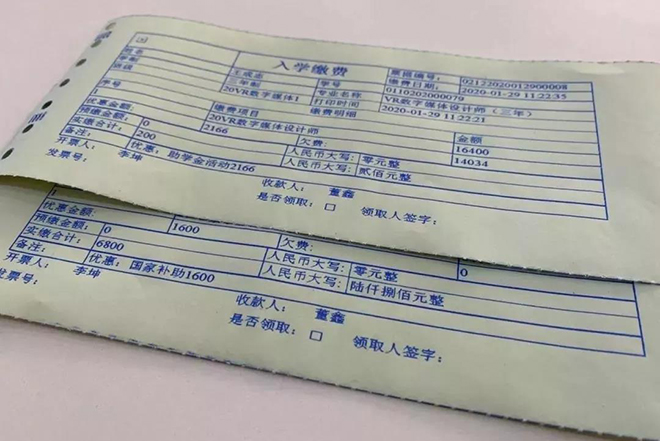 入学缴费
票据编号: 02122020012900008
姓名 王成志 学号 缴费日期: 2020-01-29 11:22:35
学制 三年制 专业名称 0110202000079
班级 20VR数字媒体1 打印时间 VR数字媒体设计师(三年)
序号 缴费项目 缴费明细 2020-01-29 11:22:21
20VR数字媒体设计师 金额
优惠金额: 2166 16400
预缴金额: 0 欠费: 14034
实缴合计: 200 人民币大写: 零元整
备注: 优惠:助学金活动2166 人民币大写: 贰佰元整
开票人: 李坤 收款人: 董鑫
发票号: 是否领取: □ 领取人签字:
优惠金额: 1600
预缴金额: 0 欠费: 0
实缴合计: 6800 人民币大写: 零元整
备注: 优惠:国家补助1600 人民币大写: 陆仟捌佰元整
开票人: 李坤 收款人: 董鑫
发票号: 是否领取: □ 领取人签字: